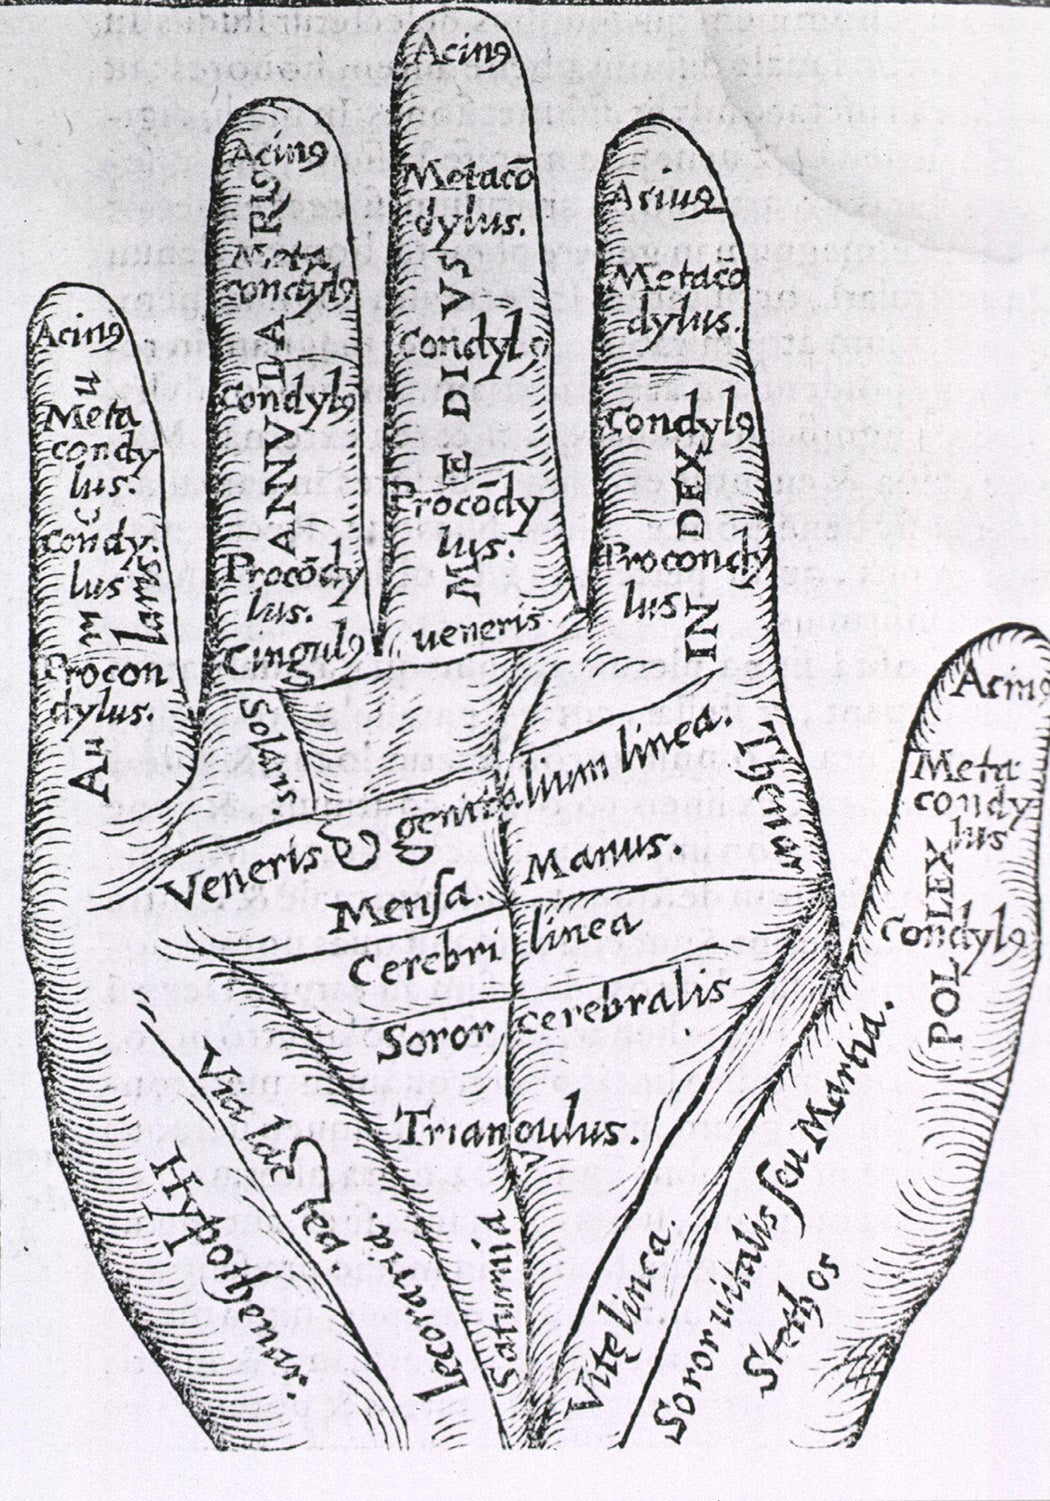 Acinꝰ
Meta
condy
lus.
Condy.
lus
Procon
dylus.
Auricularis
Acinꝰ
Meta
condylꝰ
Condylꝰ
Procōdy
lus.
ANNVLARIS
Acinꝰ
Metacō
dylus.
Condylꝰ
Procōdy
lus.
MEDIVS
Acinꝰ
Metacō
dylus.
Condylꝰ
Procondy
lus
INDEX
Acinꝰ
Meta
condy
lus
Condylꝰ
POLLEX
Cingulꝰ ueneris
Solaris
Veneris & genitalium linea.
Thenar
Mensa. Manus.
Cerebri linea
Soror cerebralis
Triangulus.
Via lactea.
Hypothenar.
Iecoraria.
Saturnia
Vitę linea.
Soror uitalis ſeu Martia.
Stethos